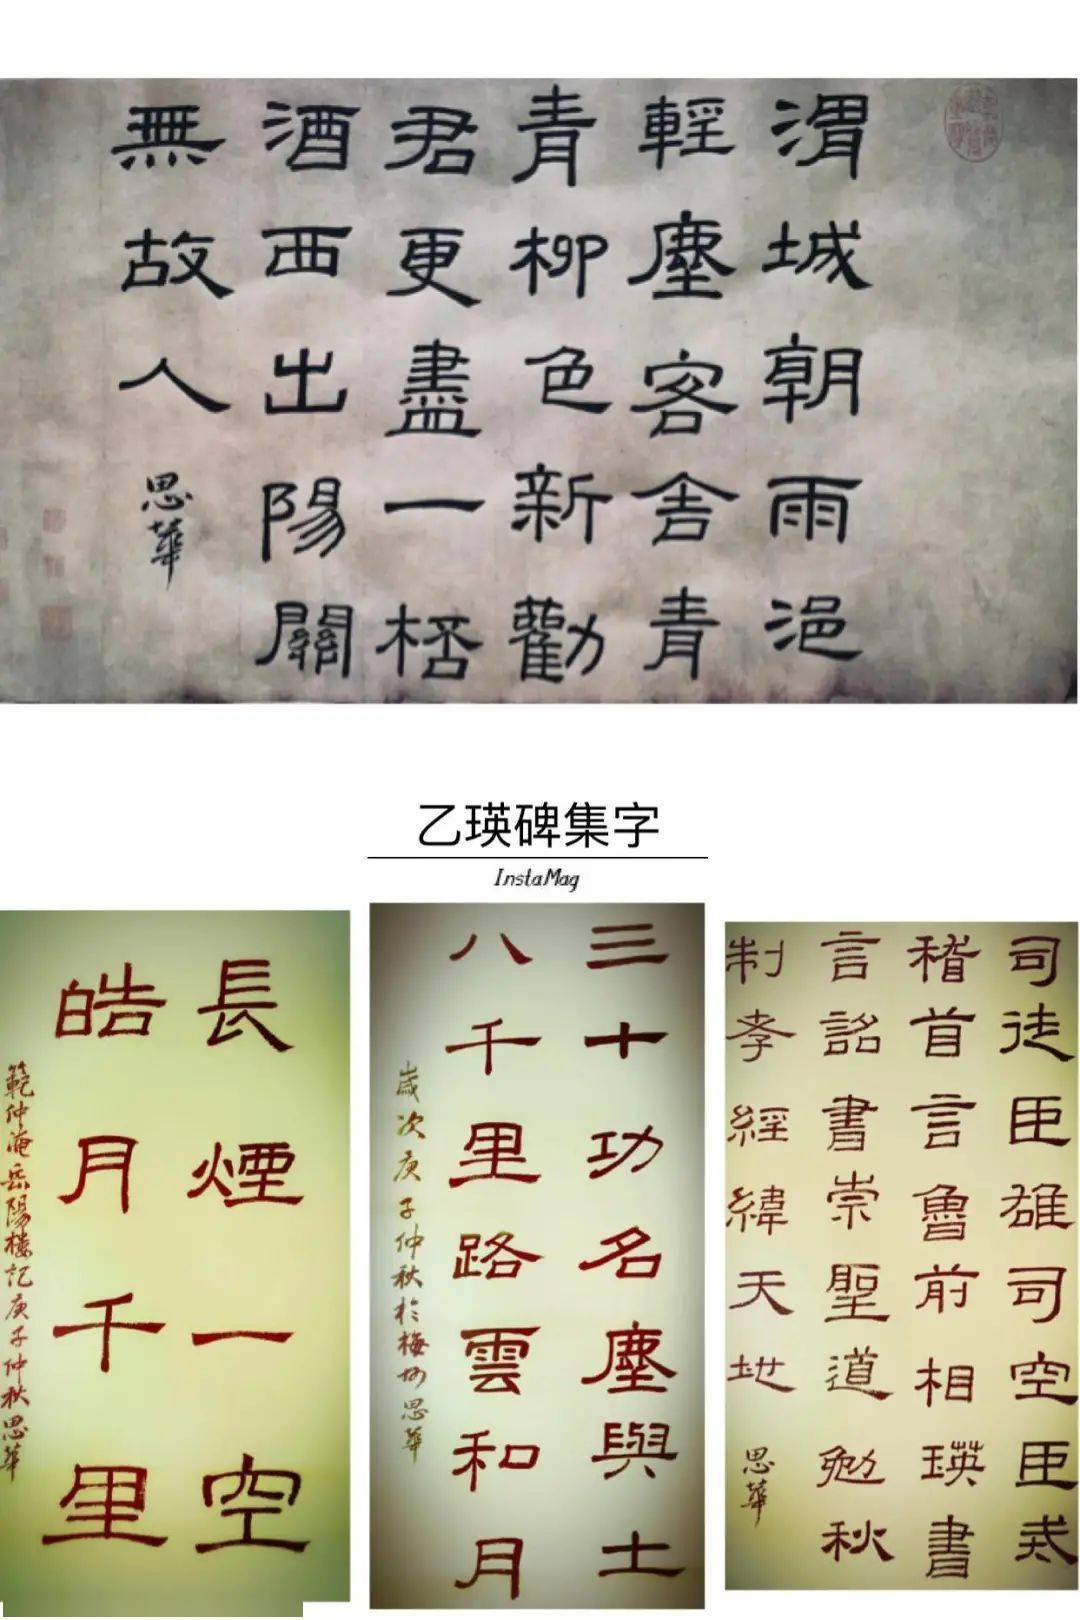 渭城朝雨浥
輕塵客舍青
青柳色新勸
君更盡一桮
酒西出陽關
無故人
思華
乙瑛碑集字
InstaMag
長煙一空
皓月千里
範仲淹岳陽樓記庚子仲秋思華
三十功名塵與土
八千里路雲和月
歲次庚子仲秋於梅州思華
司徒臣雄司空臣戒
稽首言魯前相瑛書
言詔書崇聖道勉秋
制孝經緯天地
思華